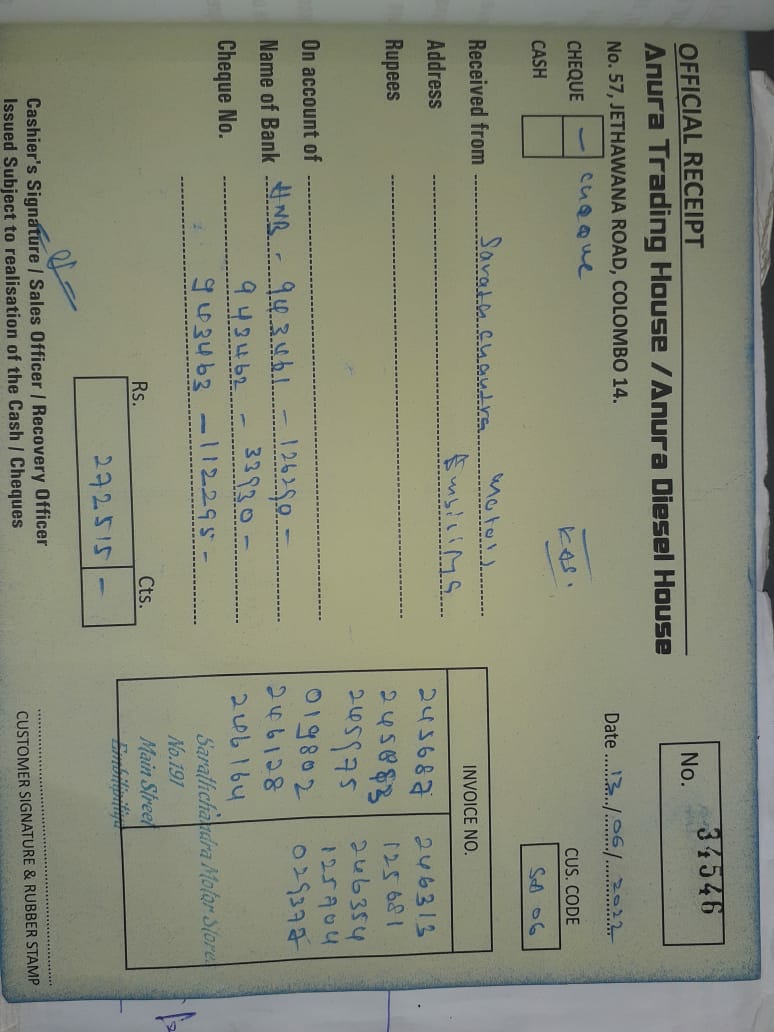 OFFICIAL RECEIPT
No. 34546
Anura Trading House / Anura Diesel House
No. 57, JETHAWANA ROAD, COLOMBO 14.
Date 13/06/2022
CHEQUE — cheque
CASH
CUS. CODE
SD 06
Received from Saratchchandra Motors
Address Embilipitiya
Rupees
On account of
Name of Bank HNB - 943461 - 126290 -
943462 - 33930 -
Cheque No.
943463 - 112295 -
Rs. Cts.
272515 -
INVOICE NO.
245687 246313
245883 125681
245975 246354
019802 125904
246128 029377
246164
Sarathchandra Motor Stores
No.191
Main Street
Embilipitiya
Cashier's Signature / Sales Officer / Recovery Officer
Issued Subject to realisation of the Cash / Cheques
CUSTOMER SIGNATURE & RUBBER STAMP